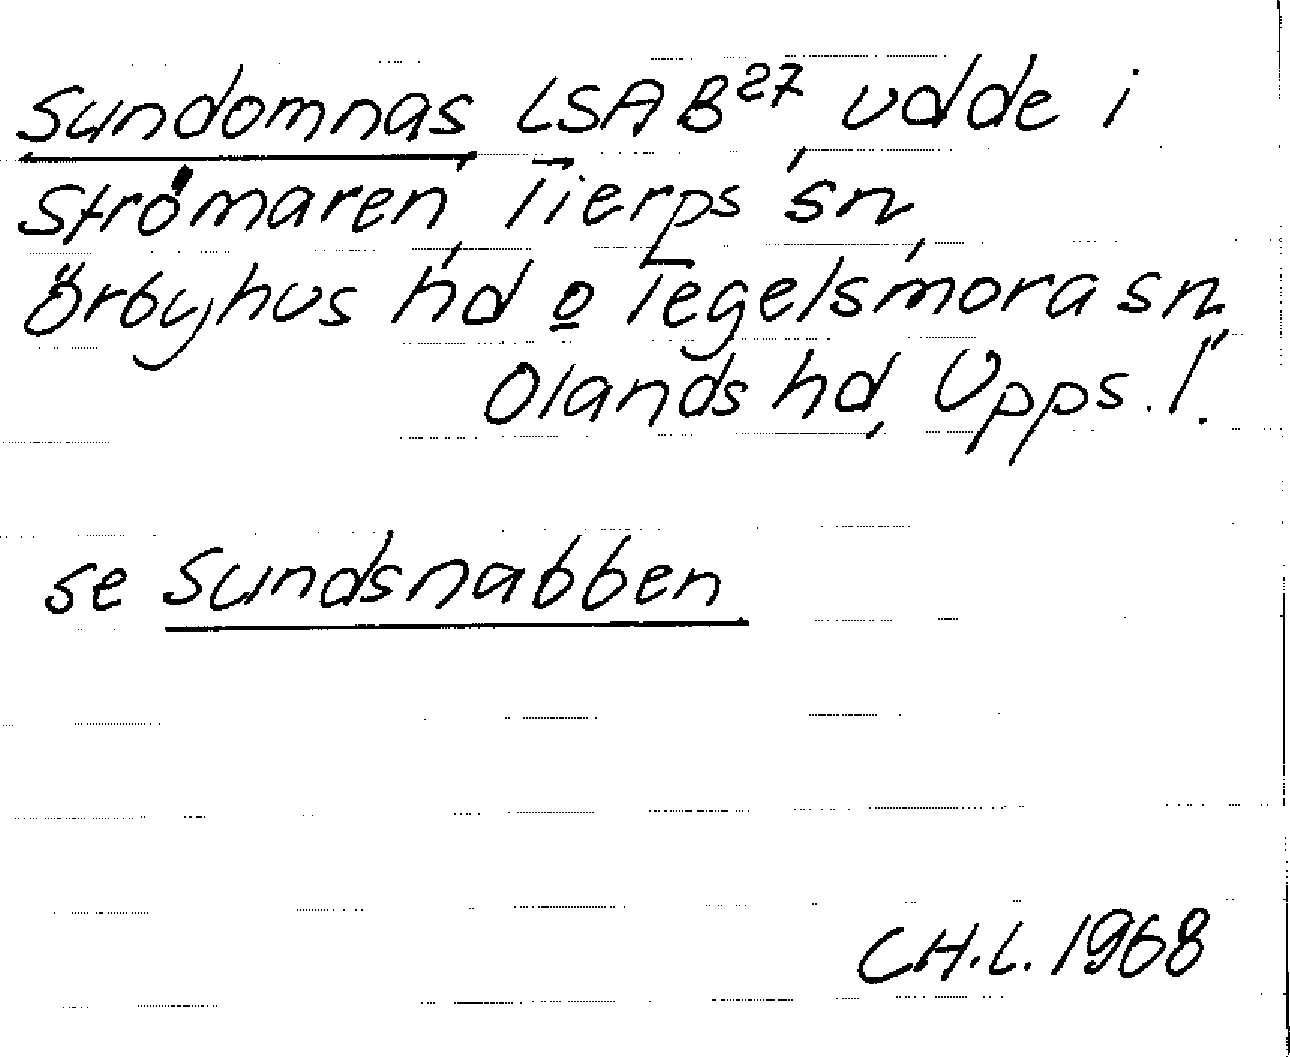 Sundomnäs LSA B27, udde i
Strömaren, Tierps sn,
Örbyhus hd o Tegelsmora sn,
Olands hd, Upps. l.
se Sundsnabben
CH.L. 1968